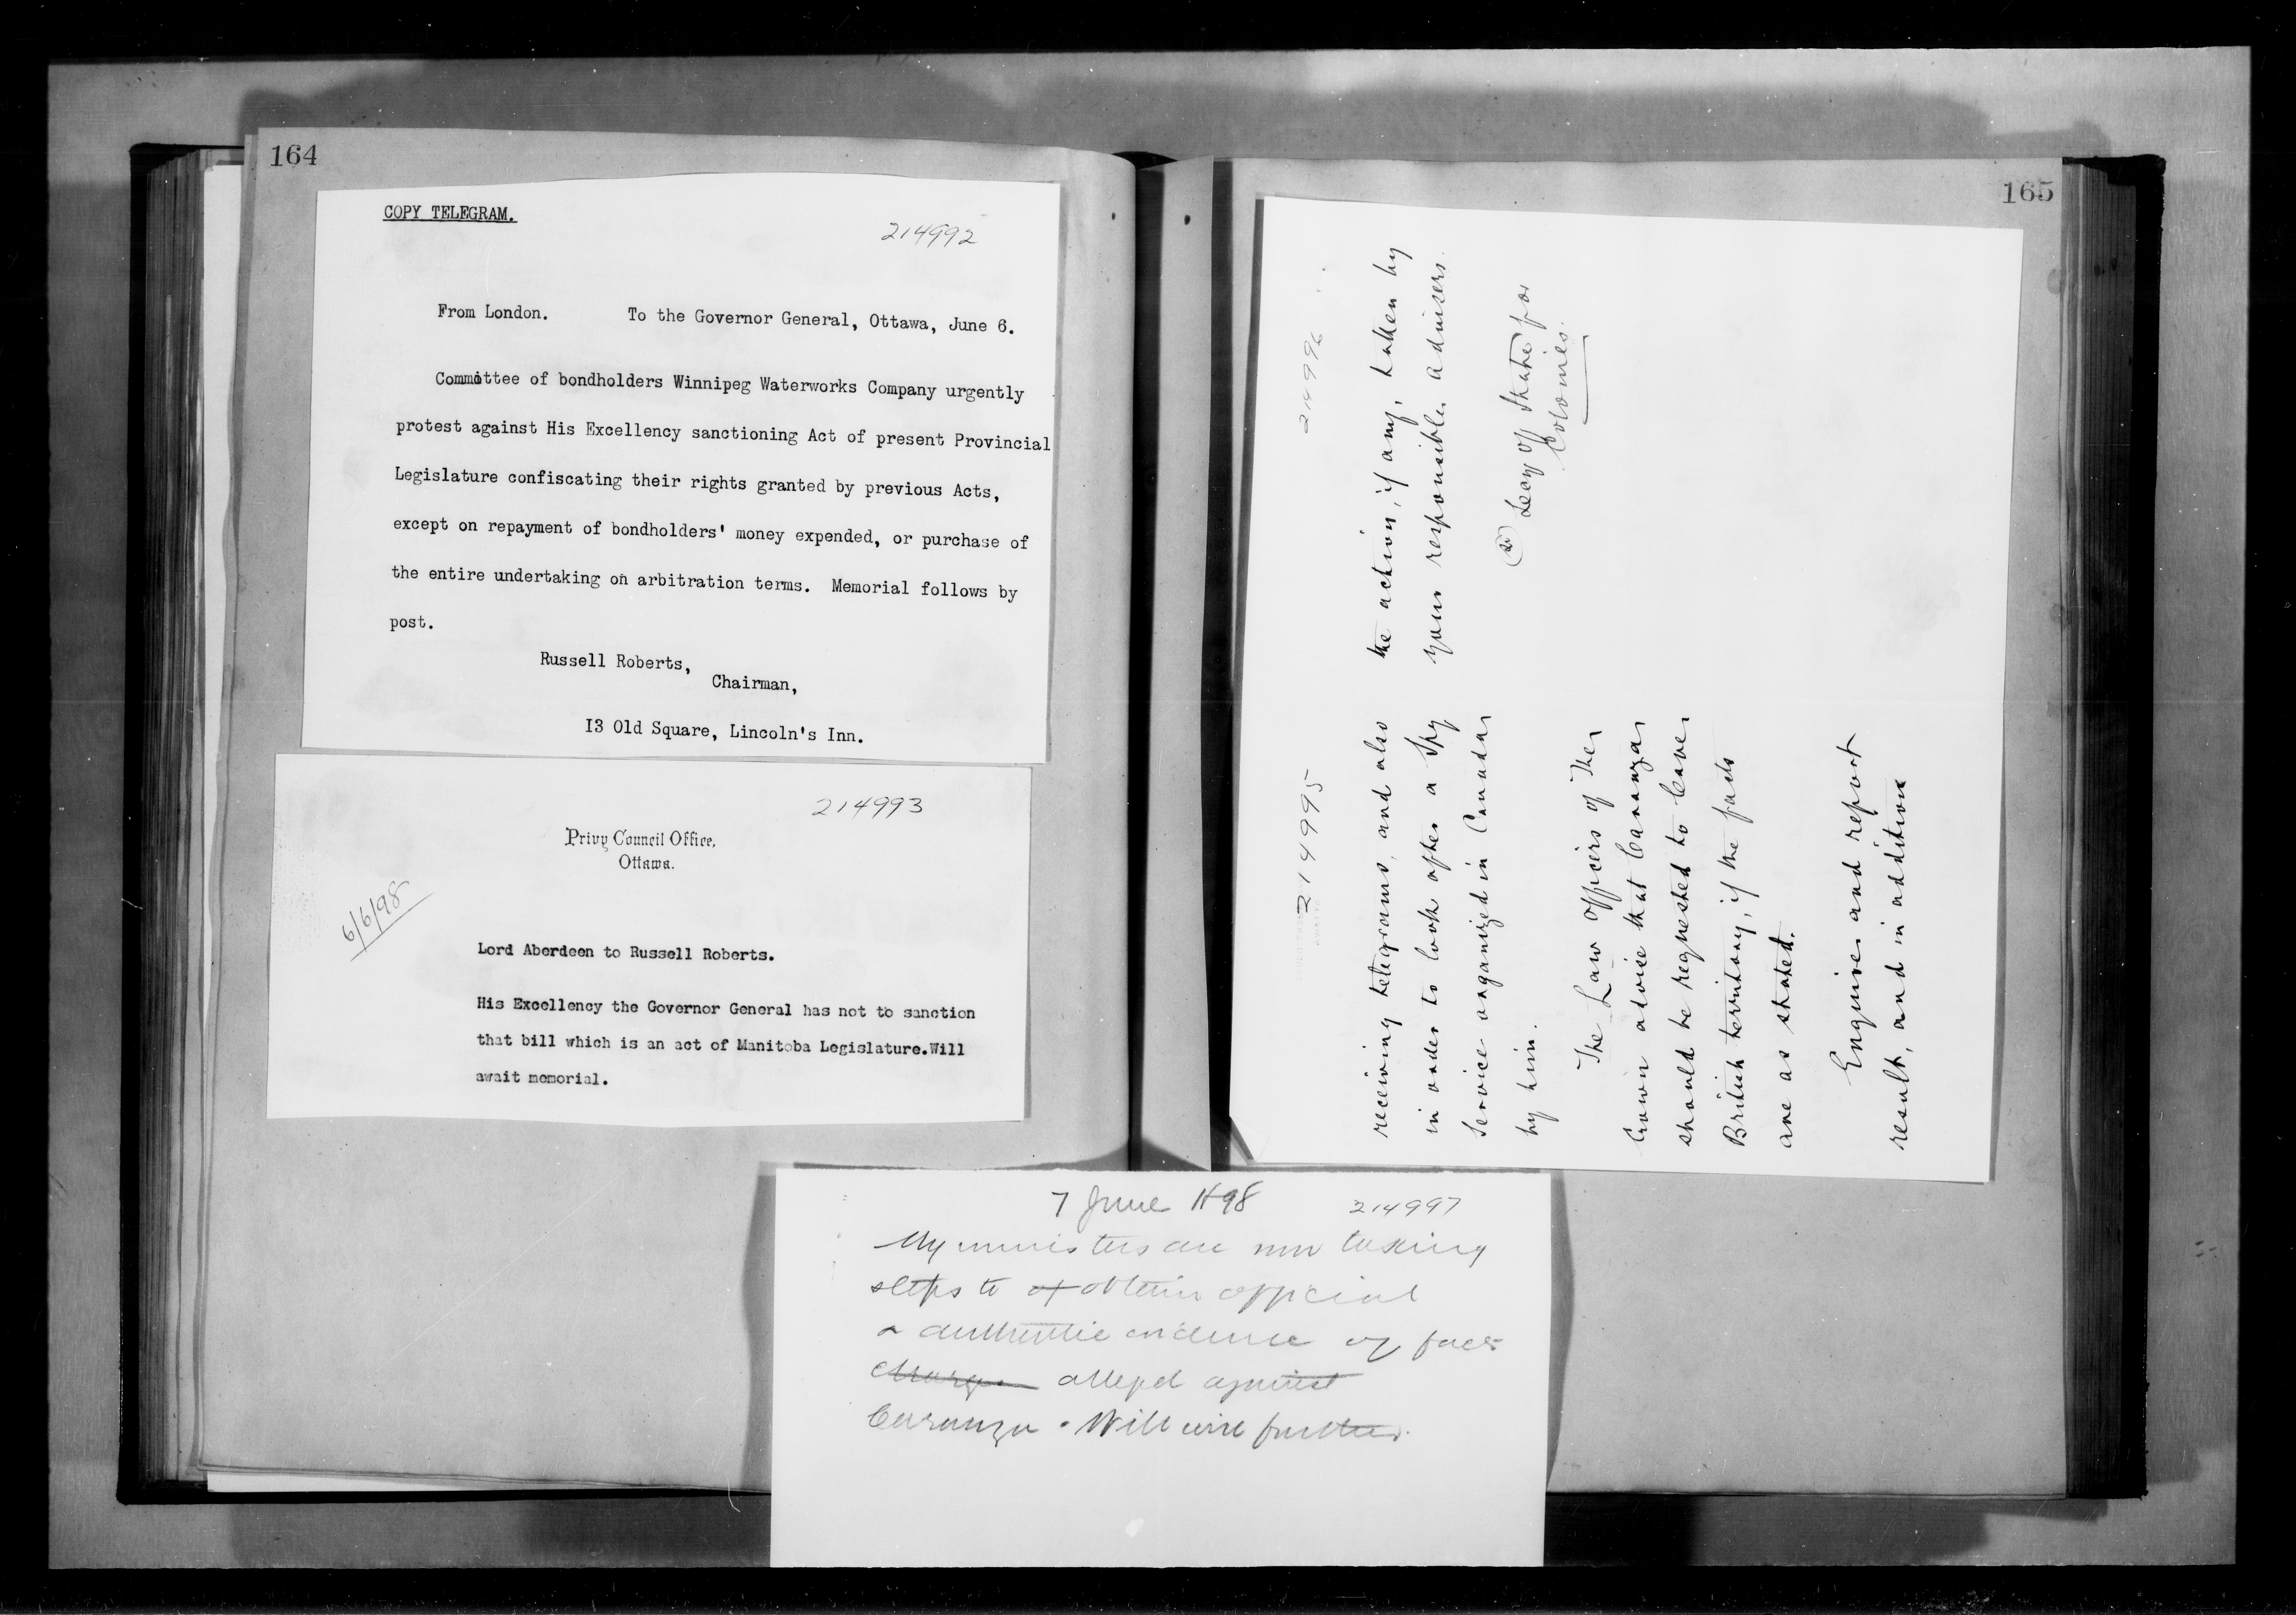 164
COPY TELEGRAM.
214992
From London. To the Governor General, Ottawa, June 6.
Committee of bondholders Winnipeg Waterworks Company urgently
protest against His Excellency sanctioning Act of present Provincial
Legislature confiscating their rights granted by previous Acts,
except on repayment of bondholders' money expended, or purchase of
the entire undertaking on arbitration terms. Memorial follows by
post.
Russell Roberts,
Chairman,
13 Old Square, Lincoln's Inn.
214993
Privy Council Office,
Ottawa.
6/6/98
Lord Aberdeen to Russell Roberts.
His Excellency the Governor General has not to sanction
that bill which is an act of Manitoba Legislature.Will
await memorial.
165
214995
receiving telegrams, and also
in order to look after a Spy
Service organized in Canada
by him.
The Law Officers of The
Crown advise that Caranza
should be requested to leave
British territory, if the facts
are as stated.
Enquire and report
result, and in addition
214996
the action, if any, taken by
your responsible advisers.
Secy of State for
Colonies.
7 June 1898
214997
My ministers are now taking
steps to obtain official
& authentic evidence of facts
charge alleged against
Caranza. Will wire further.